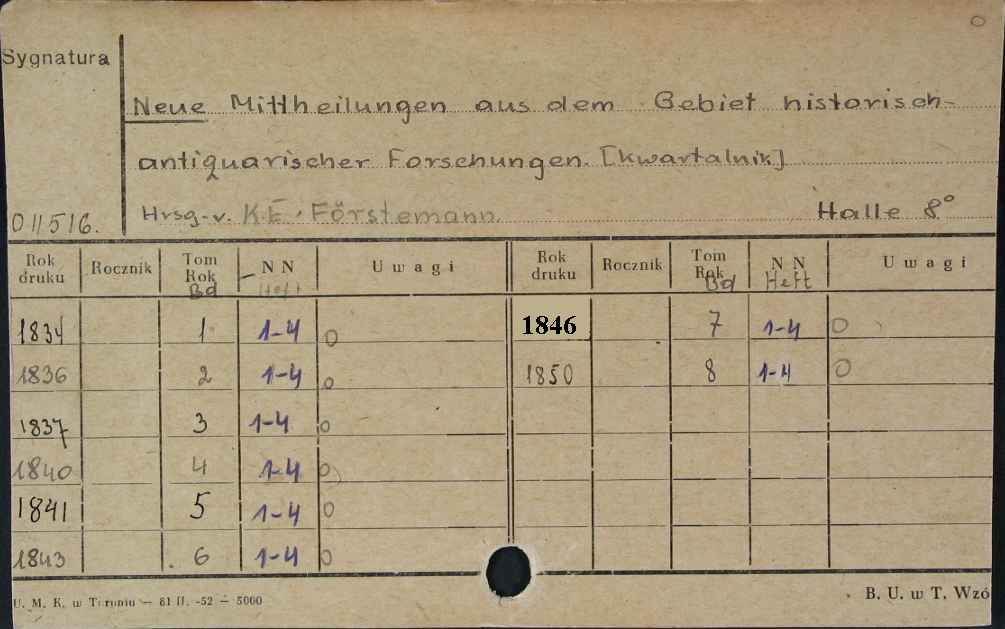 Sygnatura
Neue Mittheilungen aus dem Gebiet historisch-
antiquarischer Forschungen. [kwartalnik]
Hrsg. v. K.E. Förstemann. Halle 8°
011516.
Rok druku Rocznik Tom Rok Bd NN Heft Uwagi Rok druku Rocznik Tom Rok Bd NN Heft Uwagi
1834 1 1-4 0 1846 7 1-4 0
1836 2 1-4 0 1850 8 1-4 0
1837 3 1-4 0
1840 4 1-4 0
1841 5 1-4 0
1843 6 1-4 0
U. M. K. w Toruniu — 81 II. -52 — 5000 B. U. w T. Wzó